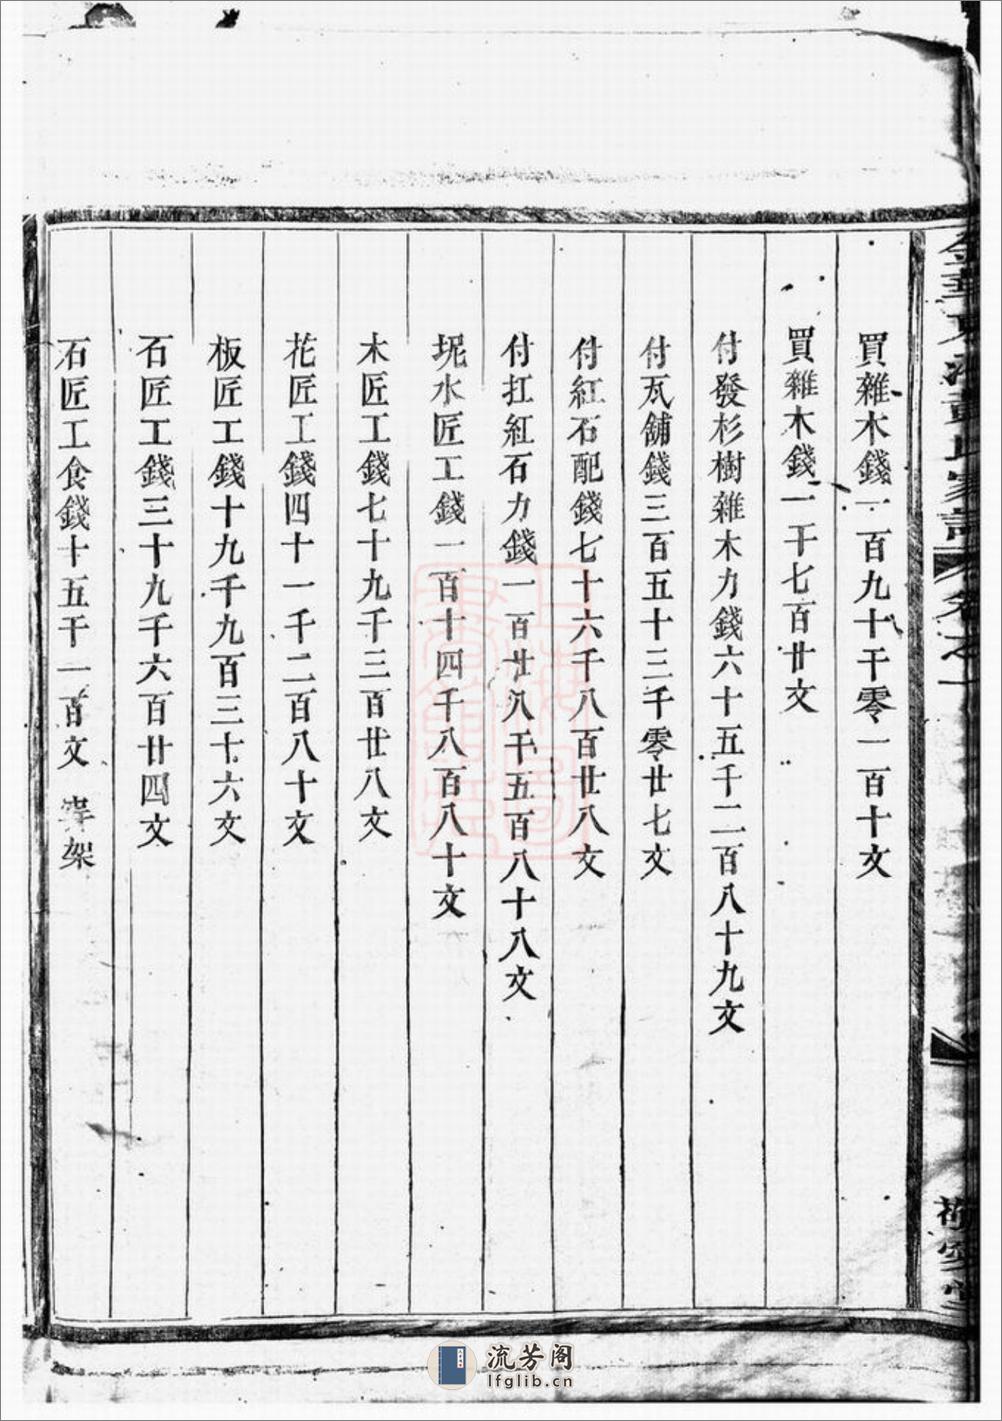 買雜木錢一百九十千零一百十文
買雜木錢一千七百廿文
付發杉樹雜木力錢六十五千二百八十九文
付瓦舖錢三百五十三千零廿七文
付紅石配錢七十六千八百廿八文
付扛紅石力錢一百廿八千五百八十八文
坭水匠工錢一百十四千八百八十文
木匠工錢七十九千三百廿八文
花匠工錢四十一千二百八十文
板匠工錢十九千九百三十六文
石匠工錢三十九千六百廿四文
石匠工食錢十五千一百文
流芳阁
lfglib.cn